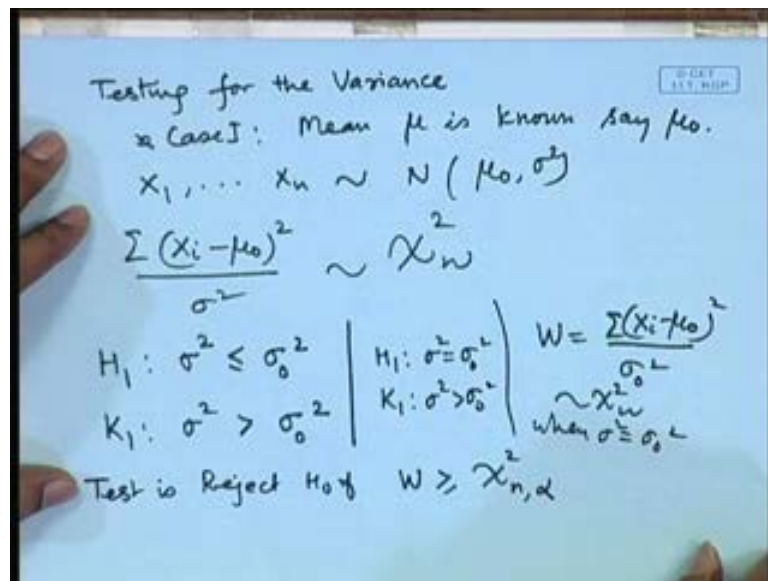 Testing for the Variance
Case I: Mean μ is known say μ₀.
X₁, ... Xₙ ~ N(μ₀, σ²)
Σ(Xᵢ-μ₀)² / σ² ~ χ²ₙ
H₁: σ² ≤ σ₀²
K₁: σ² > σ₀²
H₁: σ² = σ₀²
K₁: σ² > σ₀²
W = Σ(Xᵢ-μ₀)² / σ₀²
~ χ²ₙ
when σ² = σ₀²
Test is Reject H₀ if W ≥ χ²ₙ,α